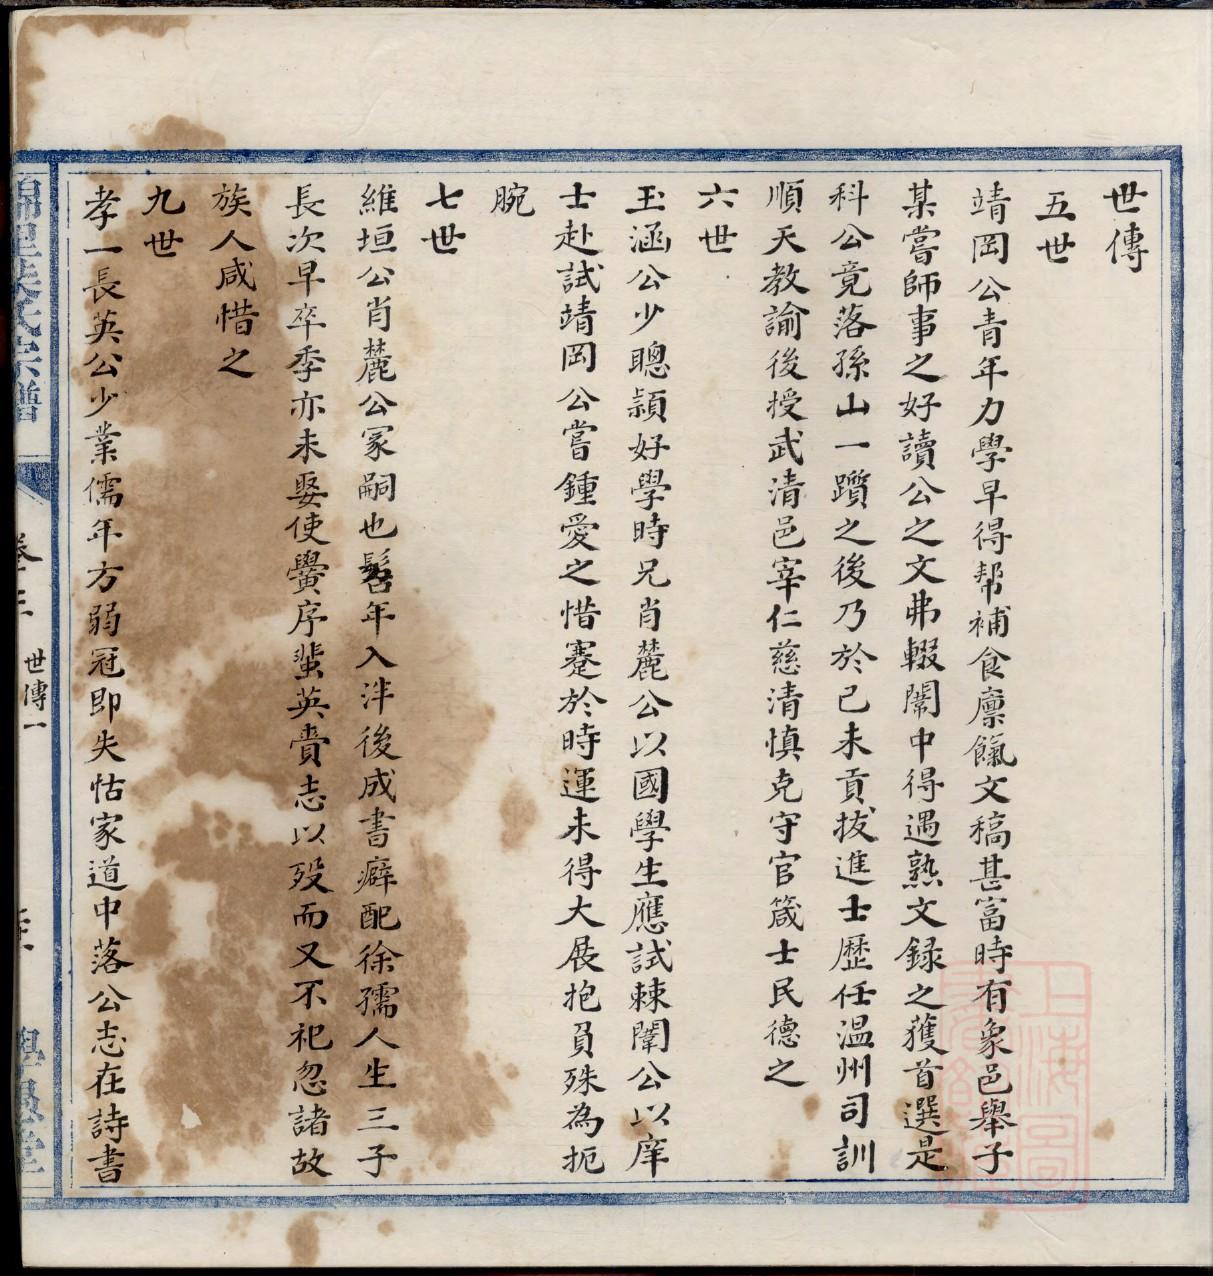 世傳
五世
靖岡公青年力學早得幇補食廩餼文稿甚富時有象邑舉子
某嘗師事之好讀公之文弗輟闈中得遇熟文録之獲首選是
科公竟落孫山一躓之後乃於己未貢拔進士歷任温州司訓
順天教諭後授武清邑宰仁慈清慎克守官箴士民德之
六世
玉涵公少聰頴好學時兄肖麓公以國學生應試棘闈公以庠
士赴試靖岡公嘗鍾愛之惜蹇於時運未得大展抱負殊為扼
腕
七世
維垣公肖麓公冢嗣也髫年入泮後成書癖配徐孺人生三子
長次早卒季亦未娶使黌序蜚英賫志以歿而又不祀忽諸故
族人咸惜之
九世
孝一長英公少業儒年方弱冠即失怙家道中落公志在詩書
氏宗譜
卷三
世傳一
上海圖